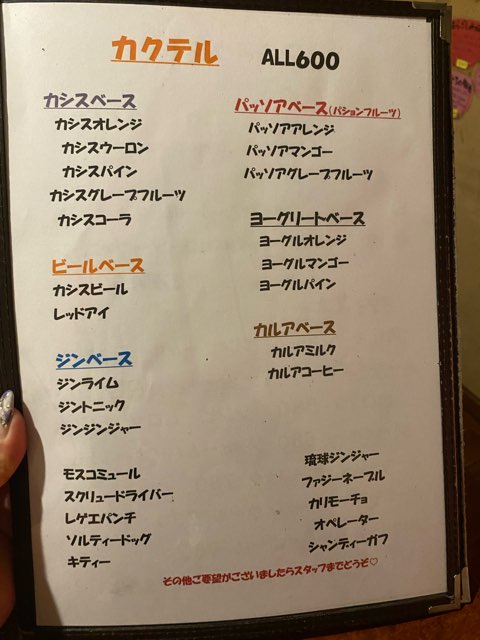 カクテル ALL600
カシスベース
カシスオレンジ
カシスウーロン
カシスパイン
カシスグレープフルーツ
カシスコーラ
ビールベース
カシスビール
レッドアイ
ジンベース
ジンライム
ジントニック
ジンジンジャー
モスコミュール
スクリュードライバー
レゲエパンチ
ソルティードッグ
キティー
パッソアベース(パションフルーツ)
パッソアアレンジ
パッソアマンゴー
パッソアグレープフルーツ
ヨーグリートベース
ヨーグルオレンジ
ヨーグルマンゴー
ヨーグルパイン
カルアベース
カルアミルク
カルアコーヒー
琉球ジンジャー
ファジーネーブル
カリモーチョ
オペレーター
シャンディーガフ
その他ご要望がございましたらスタッフまでどうぞ♡